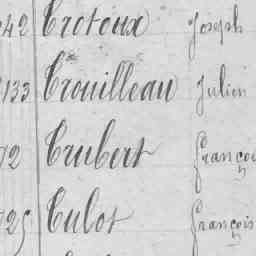 242 Croteux Joseph
133 Crouilleau Julien
72 Crubert Françoi
725 Culot François